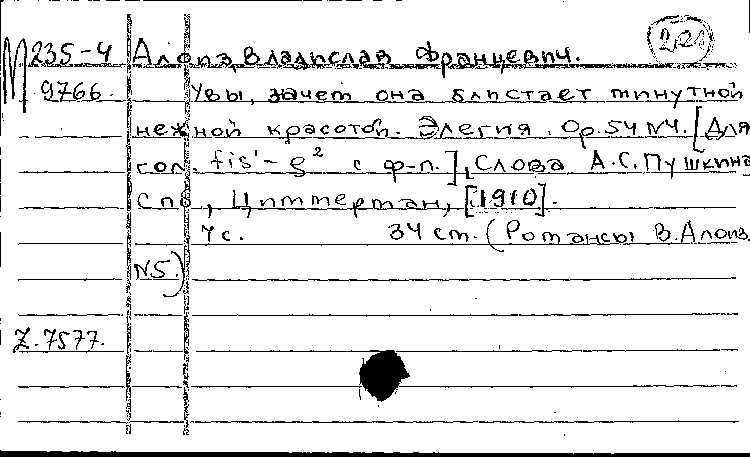 М 235-4 Алоиз, Владислав Францевич.
9766. Увы, зачем она блистает минутной
нежной красотой. Элегия. Op. 54 N4. [Для
гол. fis¹-g² с ф-п.], Слова А.С. Пушкина
Спб, Циммерман, [1910].
7с. 34 см. (Романсы В. Алоиз
N5.)
Z.7577.